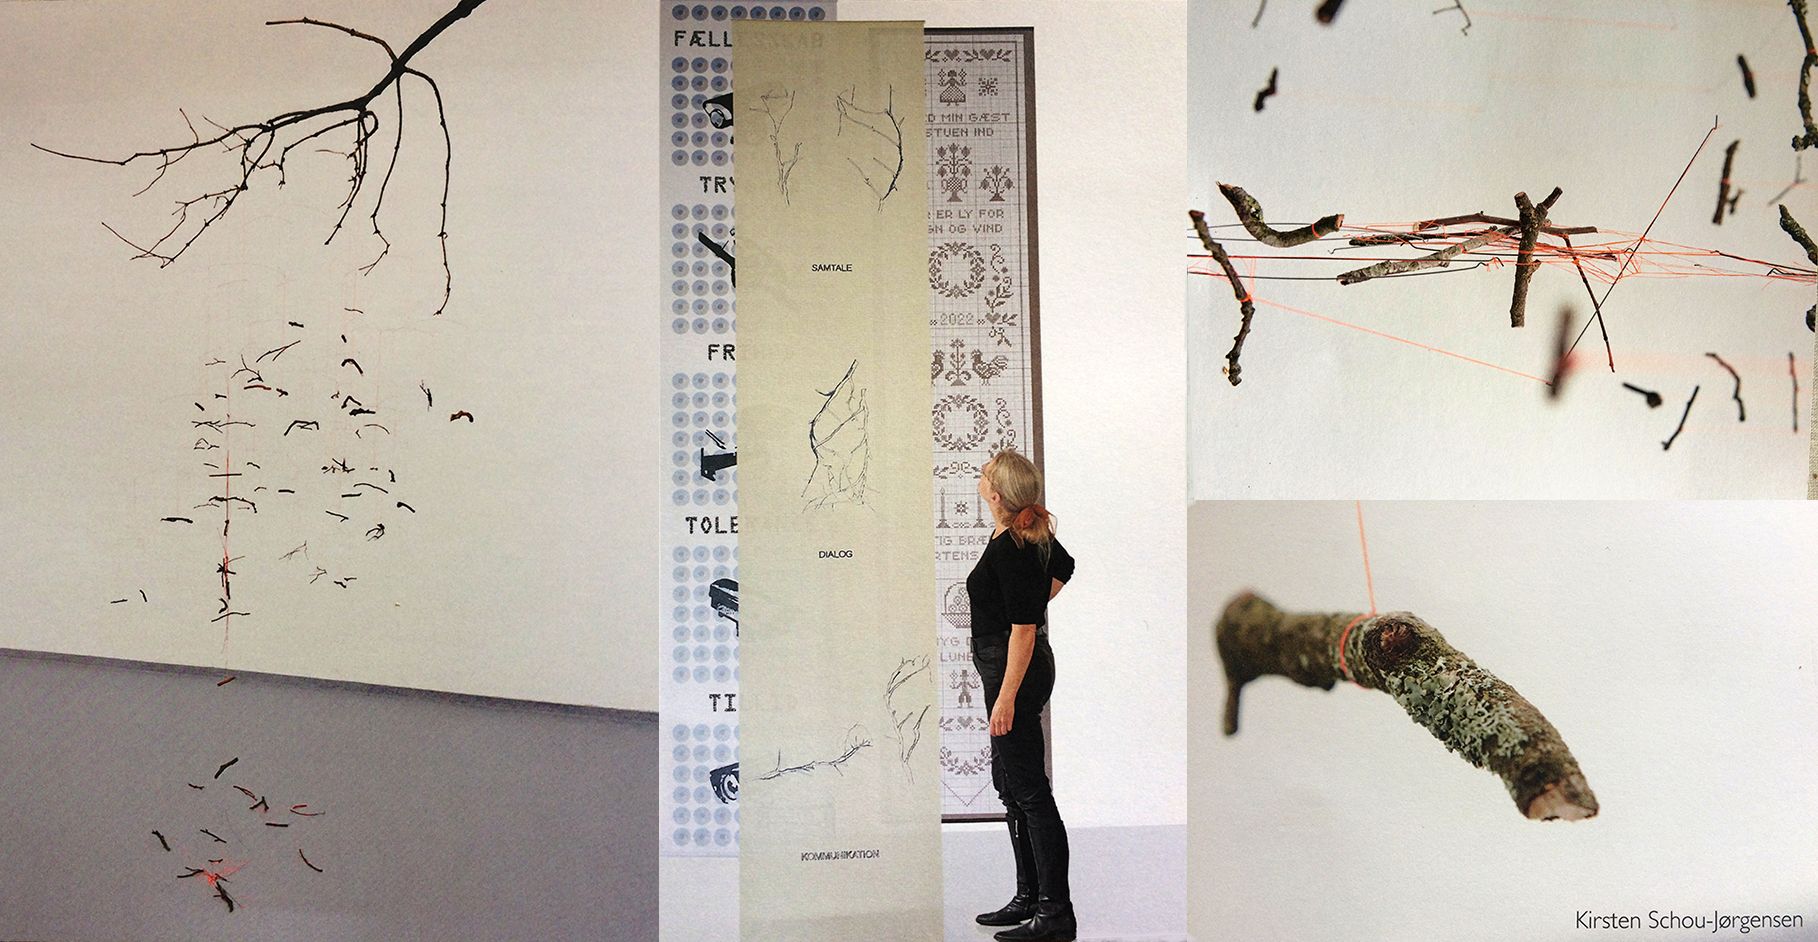 FÆLLESSKAB
TRY
FRI
TOLE
TILLID
SAMTALE
DIALOG
KOMMUNIKATION
D MIN GÆST
STUEN IND
ER LY FOR
GN OG VIND
2022
TIG BRÆ
RTENS
YG
LUNE
Kirsten Schou-Jørgensen